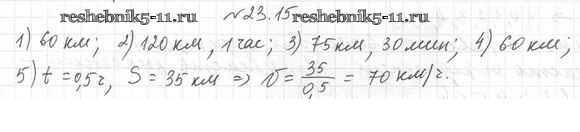 reshebnik5-11.ru
№23.15
reshebnik5-11.ru
1) 60 км; 2) 120 км, 1 час; 3) 75 км, 30 мин; 4) 60 км;
5) t = 0,5 ч, S = 35 км ⇒ V = 35/0,5 = 70 км/ч.